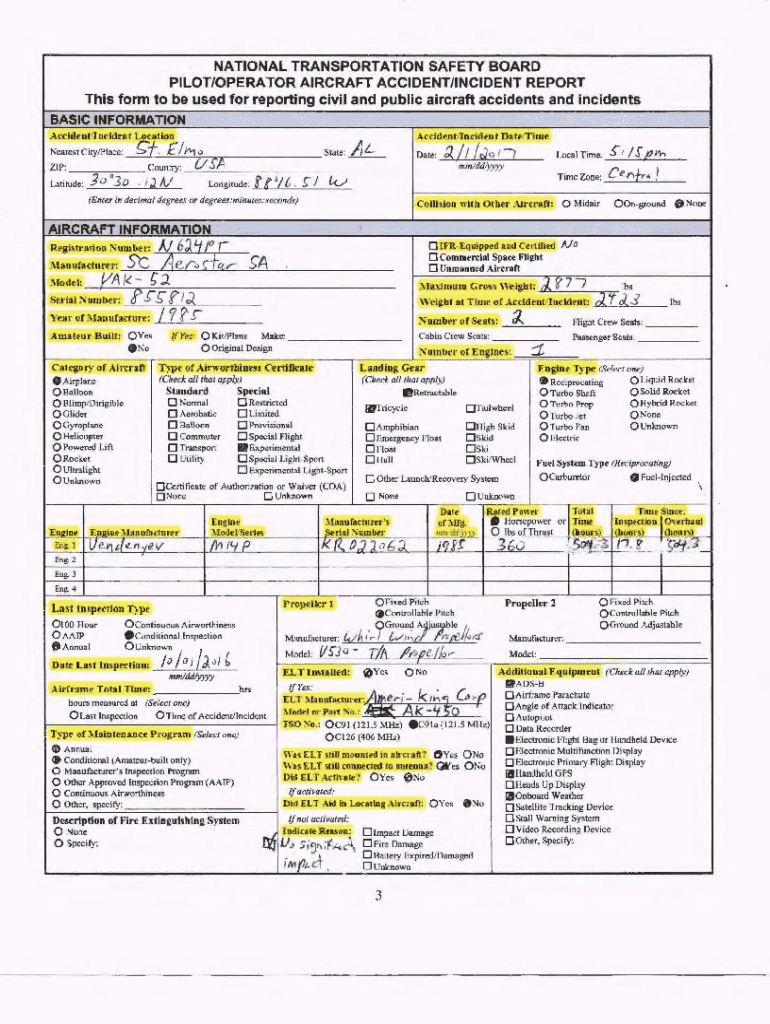 NATIONAL TRANSPORTATION SAFETY BOARD
PILOT/OPERATOR AIRCRAFT ACCIDENT/INCIDENT REPORT
This form to be used for reporting civil and public aircraft accidents and incidents
BASIC INFORMATION
Accident/Incident Location
Nearest City/Place: St. Elmo State: AL
ZIP: Country: USA
Latitude: 30°30 .12N Longitude: 88°16.51 W
(Enter in decimal degrees or degrees:minutes:seconds)
Accident/Incident Date/Time
Date: 2/1/2017 Local Time: 5:15pm
mm/dd/yyyy
Time Zone: Central
Collision with Other Aircraft: Midair On-ground None
AIRCRAFT INFORMATION
Registration Number: N624PT
Manufacturer: SC Aerostar SA
Model: YAK-52
Serial Number: 855812
Year of Manufacture: 1985
Amateur Built: Yes If Yes: Kit/Plans Make:
No Original Design
IFR-Equipped and Certified No
Commercial Space Flight
Unmanned Aircraft
Maximum Gross Weight: 2877 lbs
Weight at Time of Accident/Incident: 2423 lbs
Number of Seats: 2 Flight Crew Seats:
Cabin Crew Seats: Passenger Seats:
Number of Engines: 1
Category of Aircraft
Airplane
Balloon
Blimp/Dirigible
Glider
Gyroplane
Helicopter
Powered Lift
Rocket
Ultralight
Unknown
Type of Airworthiness Certificate
(Check all that apply)
Standard Special
Normal Restricted
Aerobatic Limited
Balloon Provisional
Commuter Special Flight
Transport Experimental
Utility Special Light-Sport
Experimental Light-Sport
Certificate of Authorization or Waiver (COA)
None Unknown
Landing Gear
(Check all that apply)
Retractable
Tricycle Tailwheel
Amphibian High Skid
Emergency Float Skid
Float Ski
Hull Ski/Wheel
Other Launch/Recovery System
None Unknown
Engine Type (Select one)
Reciprocating Liquid Rocket
Turbo Shaft Solid Rocket
Turbo Prop Hybrid Rocket
Turbo Jet None
Turbo Fan Unknown
Electric
Fuel System Type (Reciprocating)
Carburetor Fuel-Injected
Engine Engine Manufacturer Engine Model/Series Manufacturer's Serial Number Date of Mfg. mm/dd/yyyy Rated Power Horsepower or lbs of Thrust Total Time (hours) Time Since: Inspection (hours) Overhaul (hours)
Eng. 1 Vendenyev M14P KR022062 1985 360 504.3 17.8 504.3
Eng. 2
Eng. 3
Eng. 4
Last Inspection Type
100 Hour Continuous Airworthiness
AAIP Conditional Inspection
Annual Unknown
Date Last Inspection: 10/01/2016
mm/dd/yyyy
Airframe Total Time: hrs
hours measured at (Select one)
Last Inspection Time of Accident/Incident
Type of Maintenance Program (Select one)
Annual
Conditional (Amateur-built only)
Manufacturer's Inspection Program
Other Approved Inspection Program (AAIP)
Continuous Airworthiness
Other, specify:
Description of Fire Extinguishing System
None
Specify:
Propeller 1 Fixed Pitch
Controllable Pitch
Ground Adjustable
Manufacturer: Whirl Wind Propellors
Model: V530- T/A Propellor
Propeller 2 Fixed Pitch
Controllable Pitch
Ground Adjustable
Manufacturer:
Model:
ELT Installed: Yes No
If Yes:
ELT Manufacturer: Ameri-King Corp
Model or Part No.: AK-450
TSO No.: C91 (121.5 MHz) C91a (121.5 MHz)
C126 (406 MHz)
Was ELT still mounted in aircraft? Yes No
Was ELT still connected to antenna? Yes No
Did ELT Activate? Yes No
If activated:
Did ELT Aid in Locating Aircraft: Yes No
If not activated:
Indicate Reason: Impact Damage
No significant Fire Damage
impact. Battery Expired/Damaged
Unknown
Additional Equipment (Check all that apply)
ADS-B
Airframe Parachute
Angle of Attack Indicator
Autopilot
Data Recorder
Electronic Flight Bag or Handheld Device
Electronic Multifunction Display
Electronic Primary Flight Display
Handheld GPS
Heads Up Display
Onboard Weather
Satellite Tracking Device
Stall Warning System
Video Recording Device
Other, Specify:
3